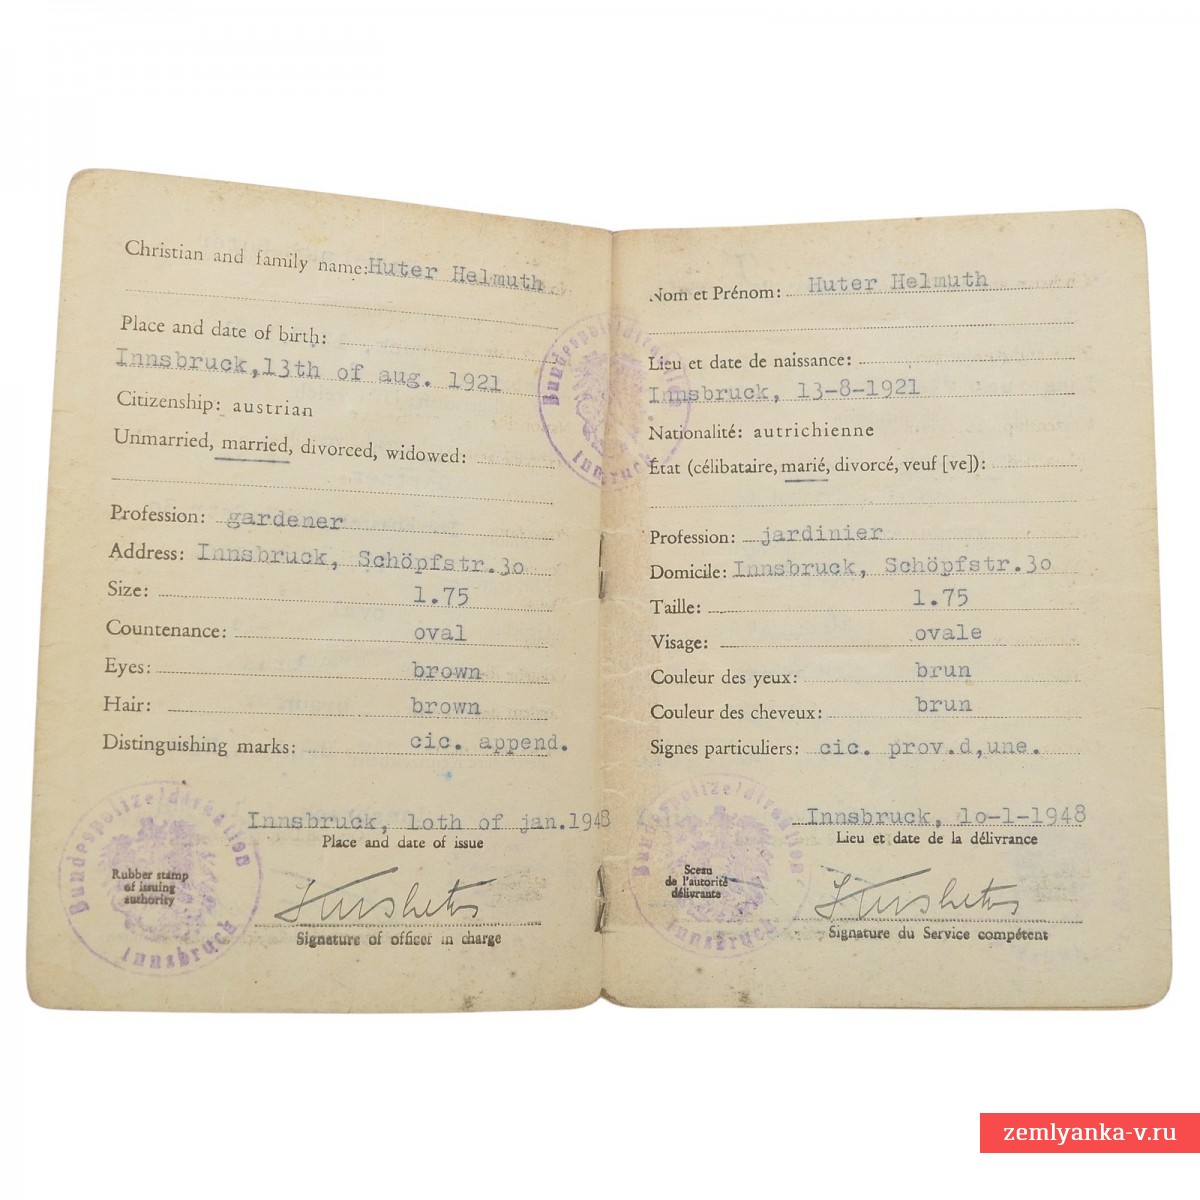 Christian and family name: Huter Helmuth
Place and date of birth:
Innsbruck, 13th of aug. 1921
Citizenship: austrian
Unmarried, married, divorced, widowed:
Profession: gardener
Address: Innsbruck, Schöpfstr.3o
Size: 1.75
Countenance: oval
Eyes: brown
Hair: brown
Distinguishing marks: cic. append.
Innsbruck, 1oth of jan.1948
Place and date of issue
Rubber stamp
of issuing
authority
Signature of officer in charge
Bundespolizeidirektion
Innsbruck
Bundespolizeidirektion
Innsbruck
Nom et Prénom: Huter Helmuth
Lieu et date de naissance:
Innsbruck, 13-8-1921
Nationalité: autrichienne
État (célibataire, marié, divorcé, veuf [ve]):
Profession: jardinier
Domicile: Innsbruck, Schöpfstr.3o
Taille: 1.75
Visage: ovale
Couleur des yeux: brun
Couleur des cheveux: brun
Signes particuliers: cic. prov.d,une.
Innsbruck, 1o-1-1948
Lieu et date de la délivrance
Sceau
de l'autorité
délivrante
Signature du Service compétent
Bundespolizeidirektion
Innsbruck
zemlyanka-v.ru